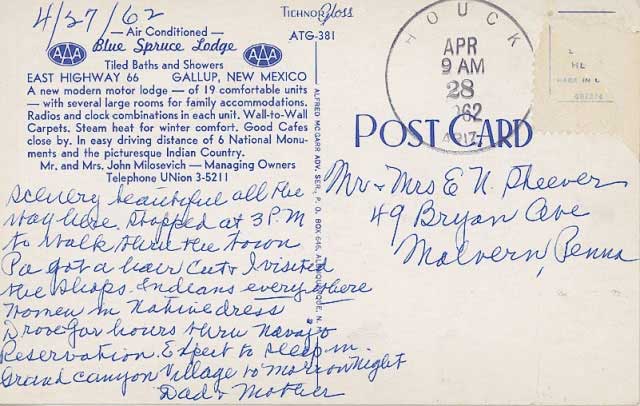 4/27/62
— Air Conditioned —
AAA Blue Spruce Lodge AAA
Tiled Baths and Showers
EAST HIGHWAY 66 GALLUP, NEW MEXICO
A new modern motor lodge — of 19 comfortable units
— with several large rooms for family accommodations.
Radios and clock combinations in each unit. Wall-to-Wall
Carpets. Steam heat for winter comfort. Good Cafes
close by. In easy driving distance of 6 National Monu-
ments and the picturesque Indian Country.
Mr. and Mrs. John Milosevich — Managing Owners
Telephone UNion 3-5211
Scenery beautiful all the
way here. Stopped at 3 P.M
to walk thru the town
Pa got a hair cut & I visited
the shops. Indians every where
women in Native dress
Drove for hours thru Navajo
Reservation. Expect to sleep in
Grand Canyon Village to morrow Night
Dad & Mother
TECHNOR Gloss
ATG-381
ALFRED MCGARR ADV. SER., P. O. BOX 646, ALBUQUERQUE, N.
HOUCK
APR
9 AM
28
1962
ARIZ.
POST CARD
Mr & Mrs E N. Sheever
49 Bryan Ave
Malvern, Penna